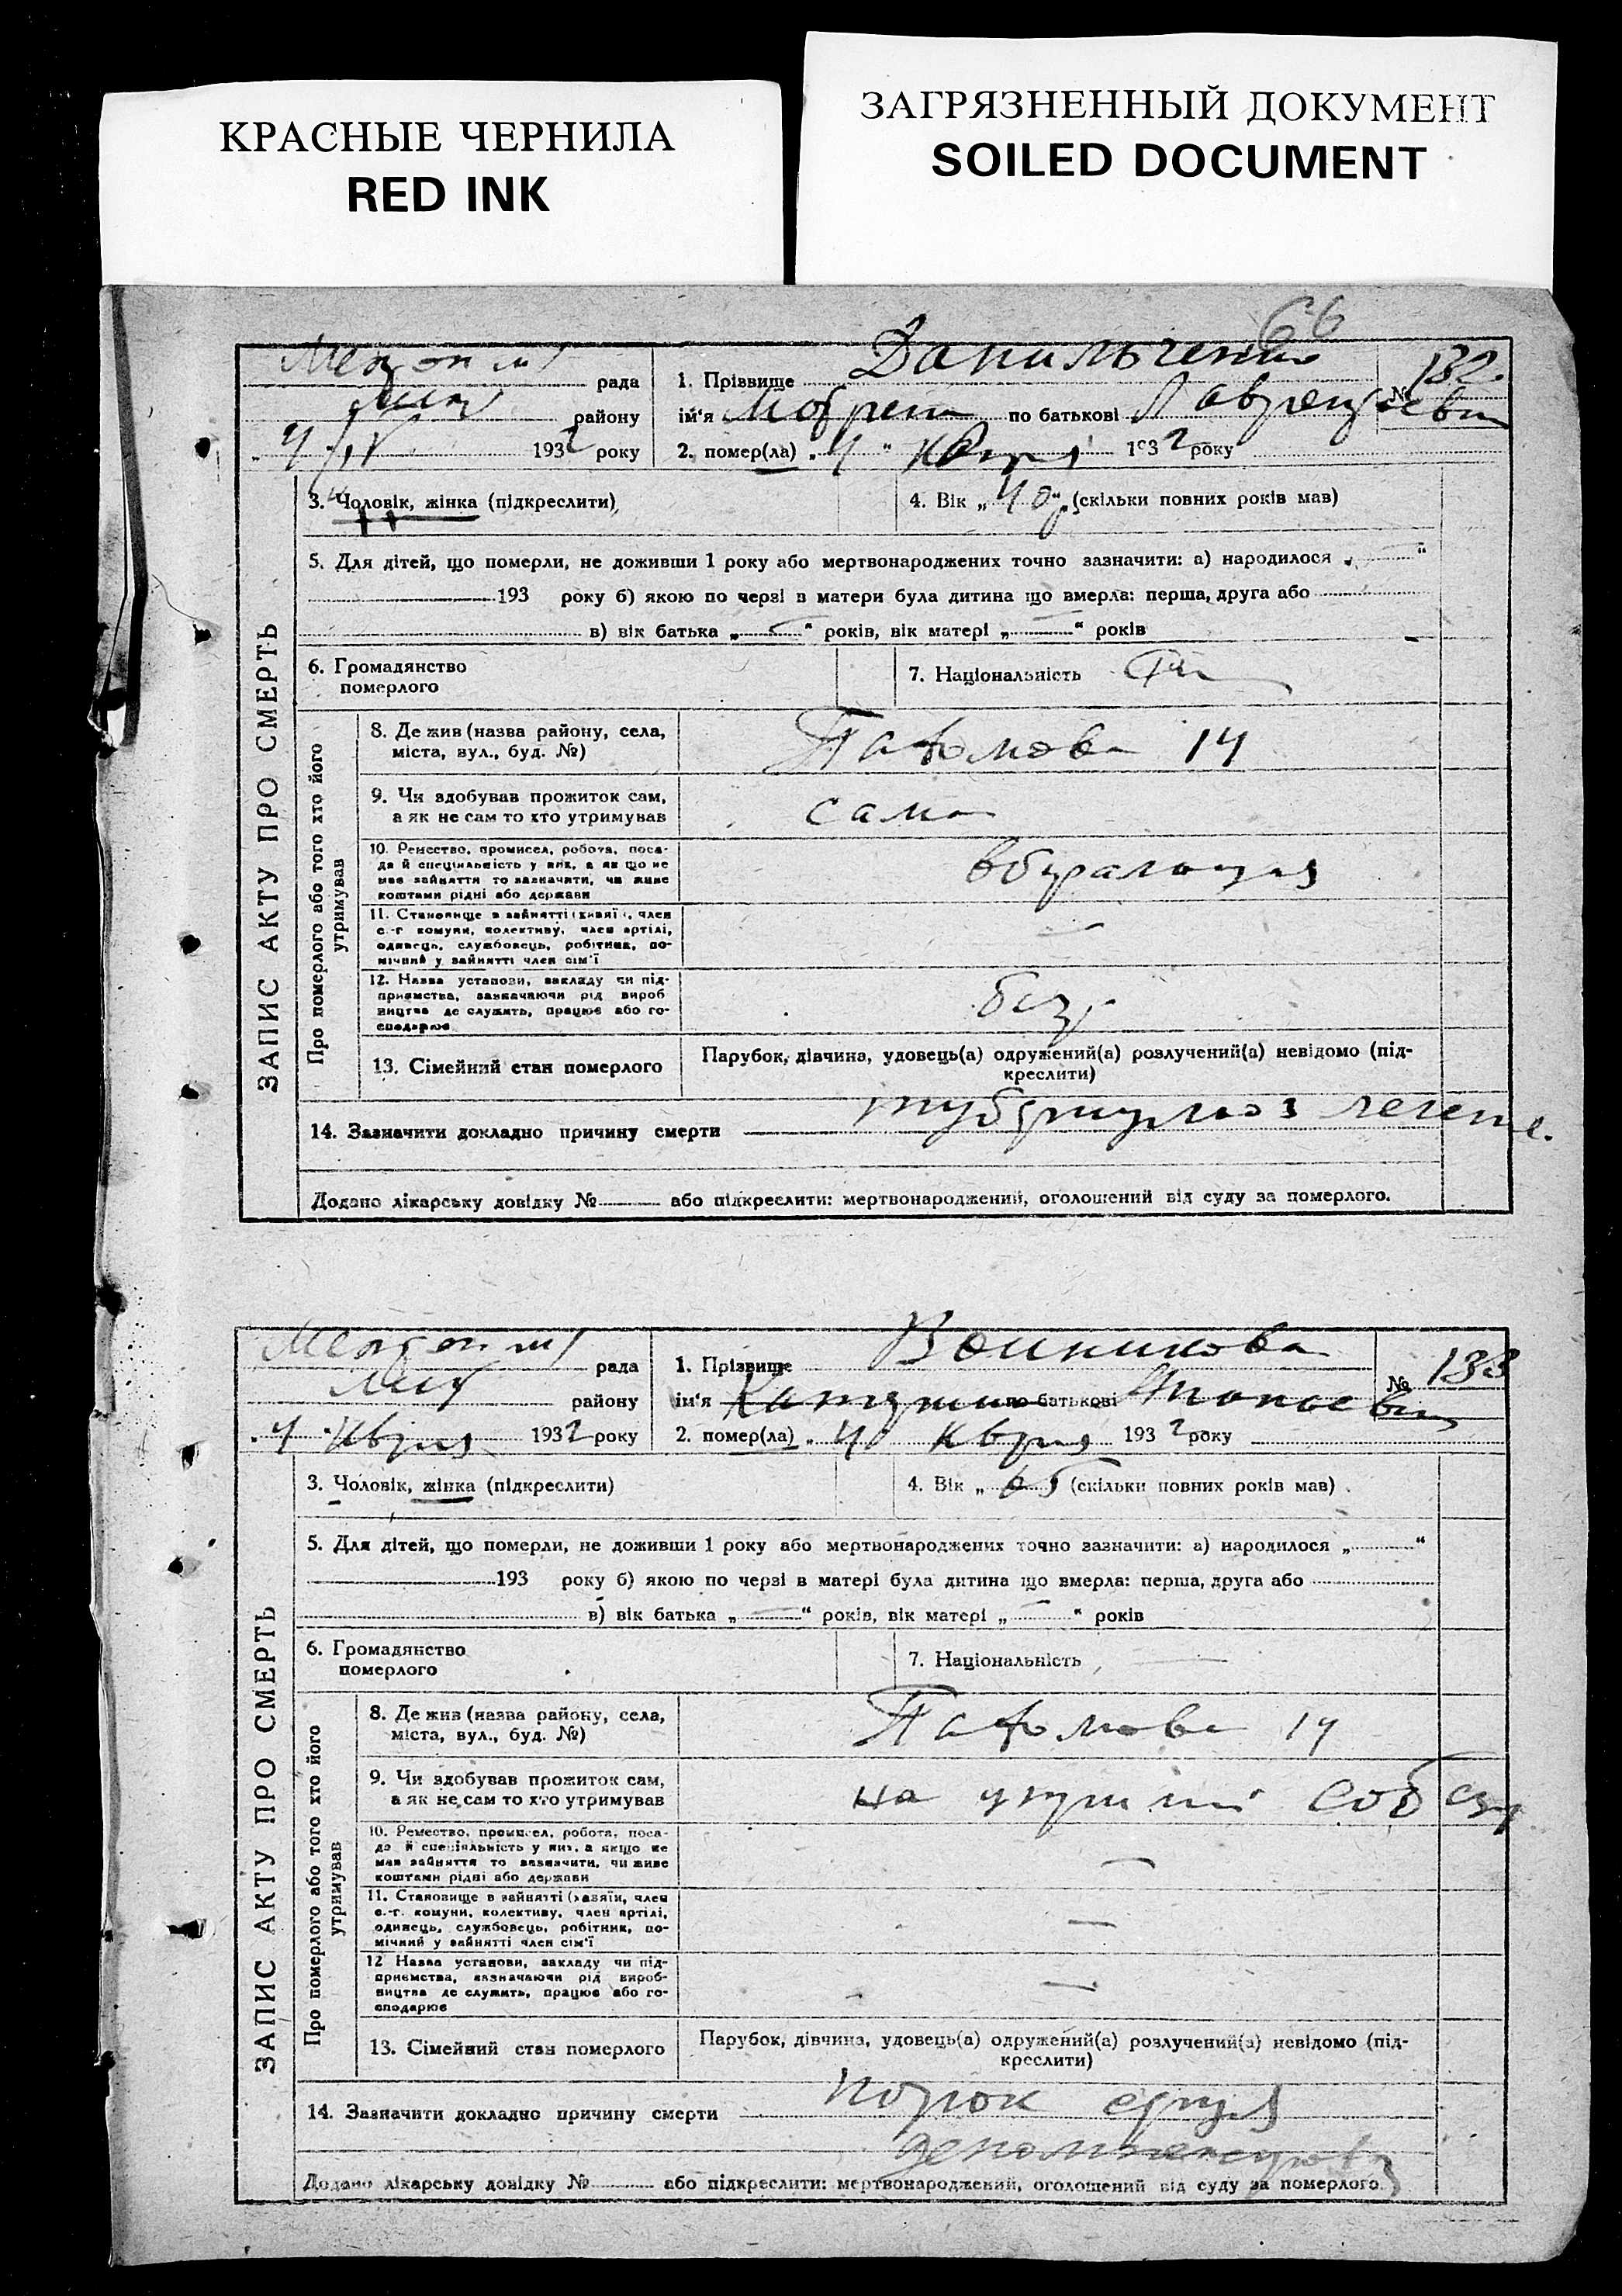 КРАСНЫЕ ЧЕРНИЛА
RED INK
ЗАГРЯЗНЕННЫЙ ДОКУМЕНТ
SOILED DOCUMENT
66
рада
району
4/IV 1932 року
1. Прізвище Данильченко
№ 132.
ім'я по батькові
2. помер(ла) „4" 1932 року
3. Чоловік, жінка (підкреслити)
4. Вік „40" (скільки повних років мав)
5. Для дітей, що померли, не доживши 1 року або мертвонароджених точно зазначити: а) народилося „ "
193 року б) якою по черзі в матери була дитина що вмерла: перша, друга або
в) вік батька „ — " років, вік матері „ — " років
6. Громадянство
померлого
7. Національність
ЗАПИС АКТУ ПРО СМЕРТЬ
Про померлого або того хто його
утримував
8. Де жив (назва району, села,
міста, вул., буд. №)
14
9. Чи здобував прожиток сам,
а як не сам то хто утримував
сама
10. Ремество, промисел, робота, поса-
да й спеціяльність у них, а як що не
мав зайняття то зазначити, чи живе
коштами рідні або держави
11. Становище в зайнятті (хазяїн, член
с.-г. комуни, колективу, член артілі,
одинець, службовець, робітник, по-
мічний у зайнятті член сім'ї
—
12. Назва установи, закладу чи під-
приємства, зазначаючи рід вироб
ництва де служить, працює або го-
сподарює
13. Сімейний стан померлого
Парубок, дівчина, удовець(а) одружений(а) розлучений(а) невідомо (під-
креслити)
14. Зазначити докладно причину смерти туберкульоз легень.
Додано лікарську довідку № або підкреслити: мертвонароджений, оголошений від суду за померлого.
рада
району
4 1932 року
1. Прізвище
№ 133
ім'я по батькові
2. помер(ла) „4 1932 року
3. Чоловік, жінка (підкреслити)
4. Вік „65 (скільки повних років мав)
5. Для дітей, що померли, не доживши 1 року або мертвонароджених точно зазначити: а) народилося „ "
193 року б) якою по черзі в матері була дитина що вмерла: перша, друга або
в) вік батька „ — " років, вік матері „ — " років
6. Громадянство
померлого
7. Національність —
ЗАПИС АКТУ ПРО СМЕРТЬ
Про померлого або того хто його
утримував
8. Де жив (назва району, села,
міста, вул., буд. №)
14
9. Чи здобував прожиток сам,
а як не сам то хто утримував
на
10. Ремество, промисел, робота, поса-
да й спеціяльність у них, а якщо не
мав зайняття то зазначити, чи живе
коштами рідні або держави
—
11. Становище в зайнятті (хазяїн, член
с.-г. комуни, колективу, член артілі,
одинець, службовець, робітник, по-
мічний у зайнятті член сім'ї
—
12 Назва установи, закладу чи під-
приємства, зазначаючи рід вироб-
ництва де служить, працює або го-
сподарює
—
13. Сімейний стан померлого
Парубок, дівчина, удовець(а) одружений(а) розлучений(а) невідомо (під-
креслити)
14. Зазначити докладно причину смерти порок серця
Додано лікарську довідку № або підкреслити: мертвонароджений, оголошений від суду за померлого.